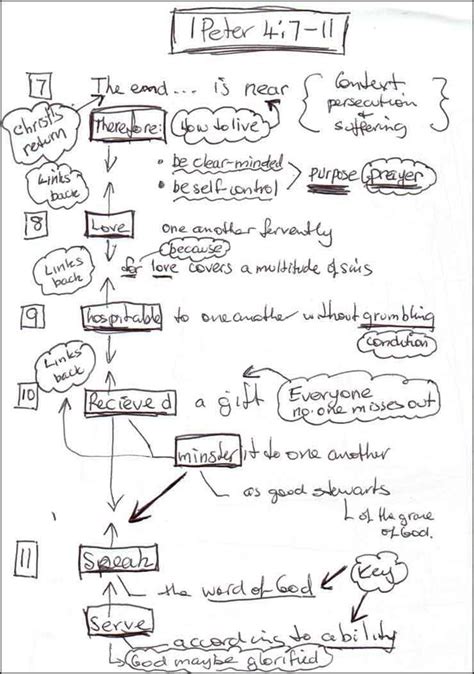 1 Peter 4:7-11
7 The end... is near
Context
persecution
&
suffering
Christ's
return
Therefore:
How to live
Links
back
• be clear-minded
• be self control
purpose prayer
8 Love one another fervently
because
Links
back
for love covers a multitude of sins
9 hospitable to one another without grumbling
condition
Links
back
10 Recieved a gift
Everyone
no one misses out
minster it to one another
as good stewarts
of the grace
of God.
11 Speak
the word of God
Key
Serve
according to ability
God maybe glorified